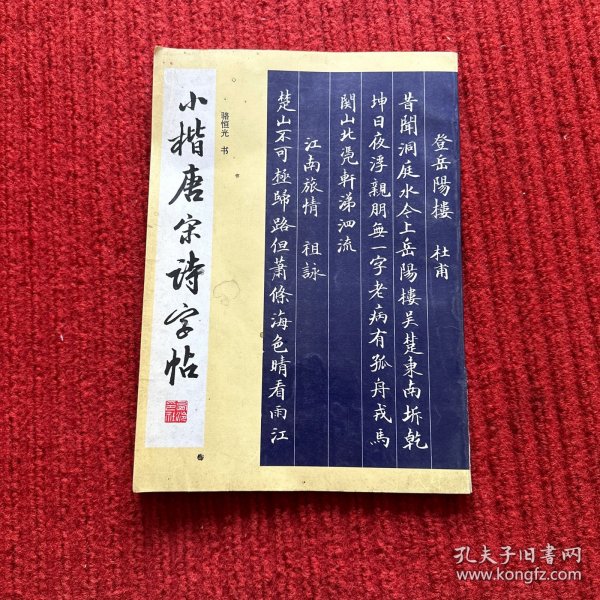 登岳陽樓 杜甫
昔聞洞庭水今上岳陽樓吴楚東南坼乾
坤日夜浮親朋無一字老病有孤舟戎馬
関山北憑軒涕泗流
江南旅情 祖詠
楚山不可極歸路但蕭條海色晴看雨江
骆恒光 书
小楷唐宋詩字帖
孔夫子旧书网
www.kongfz.com